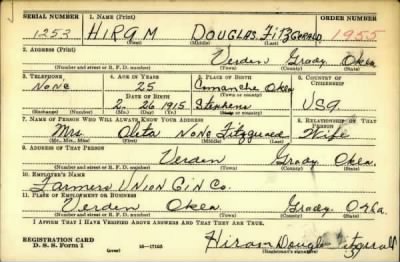 SERIAL NUMBER 1. NAME (Print) ORDER NUMBER
1253 HIRAM DOUGLAS FITZGERALD 1955
(First) (Middle) (Last)
2. ADDRESS (Print)
Verden Grady Okla
(Number and street or R. F. D. number) (Town) (County) (State)
3. TELEPHONE 4. AGE IN YEARS 5. PLACE OF BIRTH 6. COUNTRY OF CITIZENSHIP
None 25 Comanche Okla
DATE OF BIRTH (Town or county)
2 26 1915 Stephens USA
(Exchange) (Number) (Mo.) (Day) (Yr.) (State or country)
7. NAME OF PERSON WHO WILL ALWAYS KNOW YOUR ADDRESS 8. RELATIONSHIP OF THAT PERSON
Mrs. Oleta None Fitzgerald Wife
(Mr., Mrs., Miss) (First) (Middle) (Last)
9. ADDRESS OF THAT PERSON
Verden Grady Okla.
(Number and street or R. F. D. number) (Town) (County) (State)
10. EMPLOYER'S NAME
Farmers UNION GIN Co.
11. PLACE OF EMPLOYMENT OR BUSINESS
Verden Okla. Grady. Okla.
(Number and street or R. F. D. number) (Town) (County) (State)
I AFFIRM THAT I HAVE VERIFIED ABOVE ANSWERS AND THAT THEY ARE TRUE.
REGISTRATION CARD
D. S. S. Form 1 (over) 16—17105 Hiram Douglas Fitzgerald
(Registrant's signature)